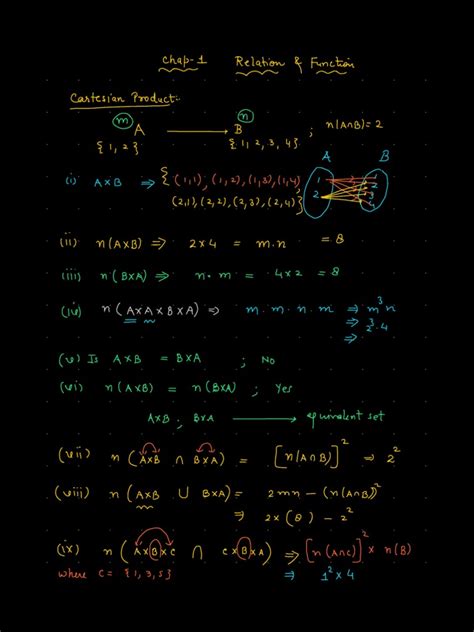 Chap-1 Relation & Function
Cartesian Product:-
m n
A ⟶ B ; n(A∩B)=2
{1, 2} {1, 2, 3, 4}
A B
(i) A×B ⇒ {(1,1), (1,2), (1,3), (1,4)
(2,1), (2,2), (2,3), (2,4)}
1 2
1 2 3 4
(ii) n(A×B) ⇒ 2×4 = m.n = 8
(iii) n(B×A) ⇒ n.m = 4×2 = 8
(iv) n(A×A×B×A) ⇒ m.m.n.m ⇒ m³n
⇒ 2³.4
⇒
(v) Is A×B = B×A ; No
(vi) n(A×B) = n(B×A) ; Yes
A×B ; B×A ⟶ equivalent set
(vii) n(A×B ∩ B×A) = [n(A∩B)]² ⇒ 2²
(viii) n(A×B ∪ B×A) = 2mn – (n(A∩B))²
⇒ 2×(8) – 2²
(ix) n(A×B×C ∩ C×B×A) ⇒ [n(A∩C)]² × n(B)
where C = {1, 3, 5} ⇒ 1² × 4